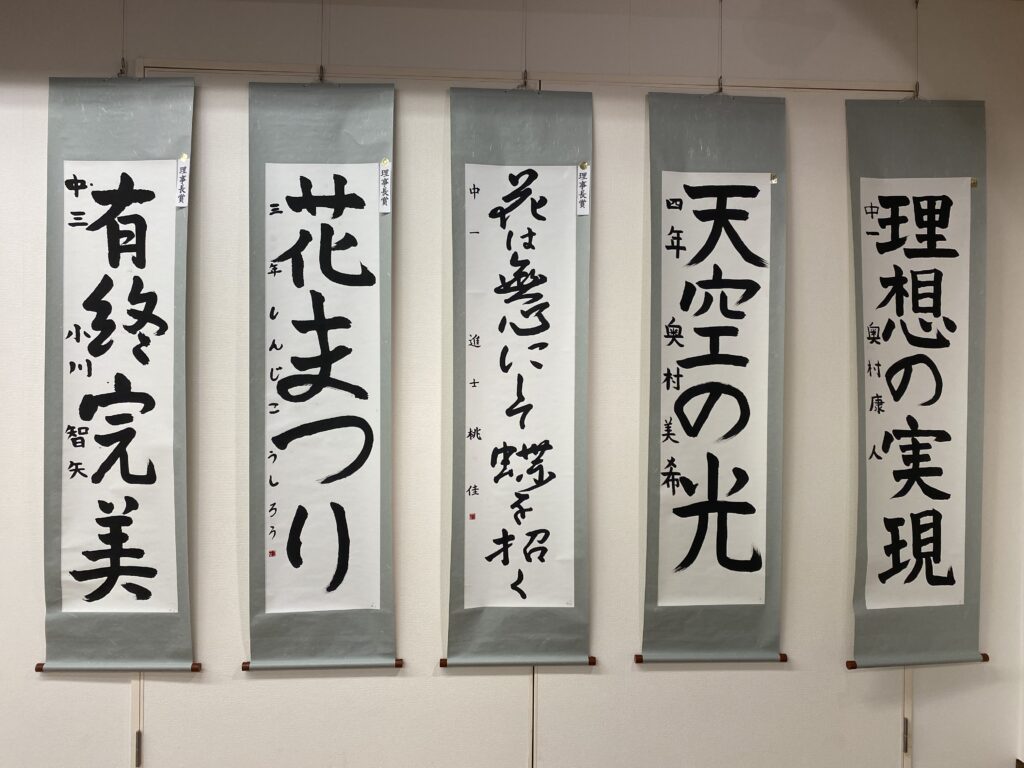 理想の実現
中一 奥村康人
天空の光
四年 奥村美希
理事長賞
花は無心にして蝶を招く
中一 進士桃佳
理事長賞
花まつり
三年 しんじこうしろう
理事長賞
有終完美
中三 小川智矢